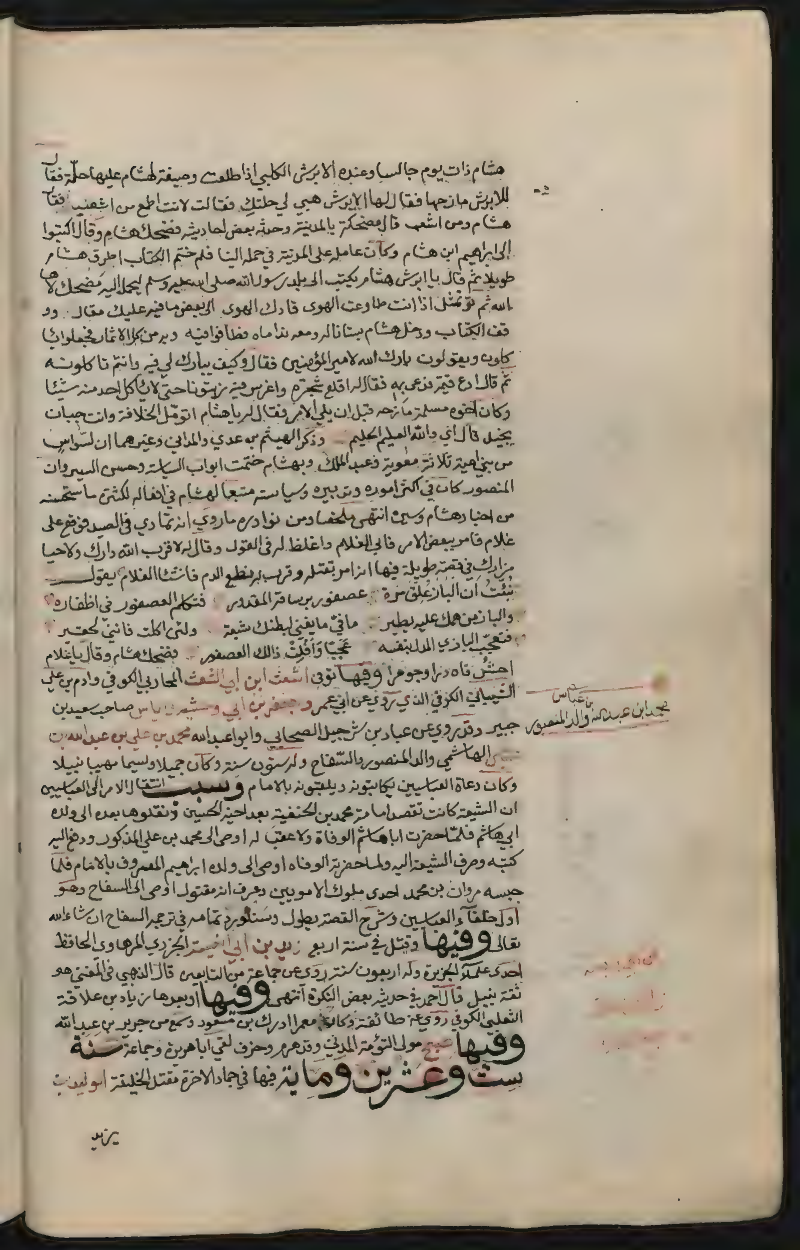 هشام ذات يوم جالسا وعنده الابرش الكلبي اذا طلعت وصيفة لهشام عليها حلة فقال
للابرش مازحها فقال لها الابرش هبي لي حلتك فقالت لانت اطمع من اشعب فقال
هشام ومن اشعب قال مضحكة بالمدينة وحدثه بعض احاديثه فضحك هشام وقال اكتبوا
الى ابراهيم ابن هشام وكان عامله على المدينة في حمله الينا فلم ختم الكتاب اطرق هشام
طويلا ثم قال يا ابرش هشام يكتب الى بلد رسول الله صلى الله عليه وسلم ليحمل اليه مضحك لاها
الله ثم تمثل اذا انت طاوعت الهوى قادك الهوى الى بعض ما فيه عليك مقال وو
قف الكتاب ودخل هشام بستانا له ومعه ندماه فطافوا فيه وبه من كل الاثمار فجعلوا يا
كلون ويقولون بارك الله لامير المؤمنين فقال وكيف يبارك لي فيه وانتم تاكلونه
ثم قال ادع قيمه فدعى به فقال له اقلع شجره واغرس فيه زيتونا حتى لا ياكل احد منه شيئا
وكان اخوه مسلمة مازحه قبل ان يلي الامر فقال له يا هشام اتومل الخلافة وانت جبان
بخيل قال اي والله العليم الحليم وذكر الهيثم بن عدي والمدايني وغيرهما ان السواس
من بني امية ثلاثة معوية وعبد الملك وبهشام ختمت ابواب السياسة وحسن السير وان
المنصور كان في اكثر اموره وتدبيره وسياسته متبعا لهشام في افعاله لكثرة ما يستحسنه
من اخبار هشام وسيره انتهى ملخصا ومن نوادره ما روي انه تمادي في الصيد فوقع على
غلام فامر ببعض الامر فابى الغلام واغلظ له في القول وقال له لا قرب الله دارك ولا حيا
مزارك في قصة طويلة فيها انه امر بقتله وقرب له نطع الدم فانشا الغلام يقول
نبئت ان الباز علق مرة عصفور بر ساقه المقدور فتكلم العصفور في اظفاره
والباز منهمك عليه يطير ما في ما يغني لبطنك شبعة ولئن اكلت فانني لحقير
فتعجب البازي المدل بنفسه عجبا وافلت ذلك العصفور فضحك هشام وقال يا غلام
احش فاه درا وجوهرا وفيها توفي اشعث ابن ابي الشعث المحاربي الكوفي وادم بن علي
الشيباني الكوفي الذي روي عن ابن عمر وجعفر بن ابي وحشية اياس صاحب سعيد بن
جبير وقد روي عن عباد بن شرحبيل الصحابي وابو عبد الله محمد بن علي بن عبد الله بن
عباس الهاشمي والد المنصور والسفاح وله ستون سنة وكان جميلا وسيما مهيبا نبيلا
وكان دعاة العباسيين يكاتبونه ويلقبونه بالامام وسبب انتقال الامر الى العباسيين
ان الشيعة كانت تعتقد امامة محمد بن الحنفية بعد اخيه الحسين ونقلوها بعده الى ولده
ابي هاشم فلما حضرت ابا هاشم الوفاة ولا عقب له اوصى الى محمد بن علي المذكور ودفع اليه
كتبه وصرف الشيعة اليه ولما حضرته الوفاة اوصى الى ولده ابراهيم المعروف بالامام فلما
حبسه مروان بن محمد احدى ملوك الامويين وعرف انه مقتول اوصى الى السفاح وهو
اول خلفاء العباسين وشرح القصة يطول وسنورد تمامه في ترجمة السفاح ان شاء الله
تعالى وفيها وقيل في سنة اربع زيد بن ابي انيسة الجزري الرهاوي الحافظ
احدى علماء الجزيرة وله اربعون سنة روي عن جماعة من التابعين قال الذهبي في المغني هو
ثقة نبيل قال احمد في حديثه بعض النكرة انتهى وفيها او بعدها زياد بن علاقة
الثعلبي الكوفي روي عن طائفة وكان معمرا ادرك بن مسعود وسمع من جرير بن عبد الله
وفيها صالح مولى التؤمة المدني وقد هرم وخرف لقي ابا هريرة وجماعة سنة
ست وعشرين وماية فيها في جماد الاخرة مقتل الخليفة
يزيد
بن عباس
محمد ابن عبد الله والد المنصور